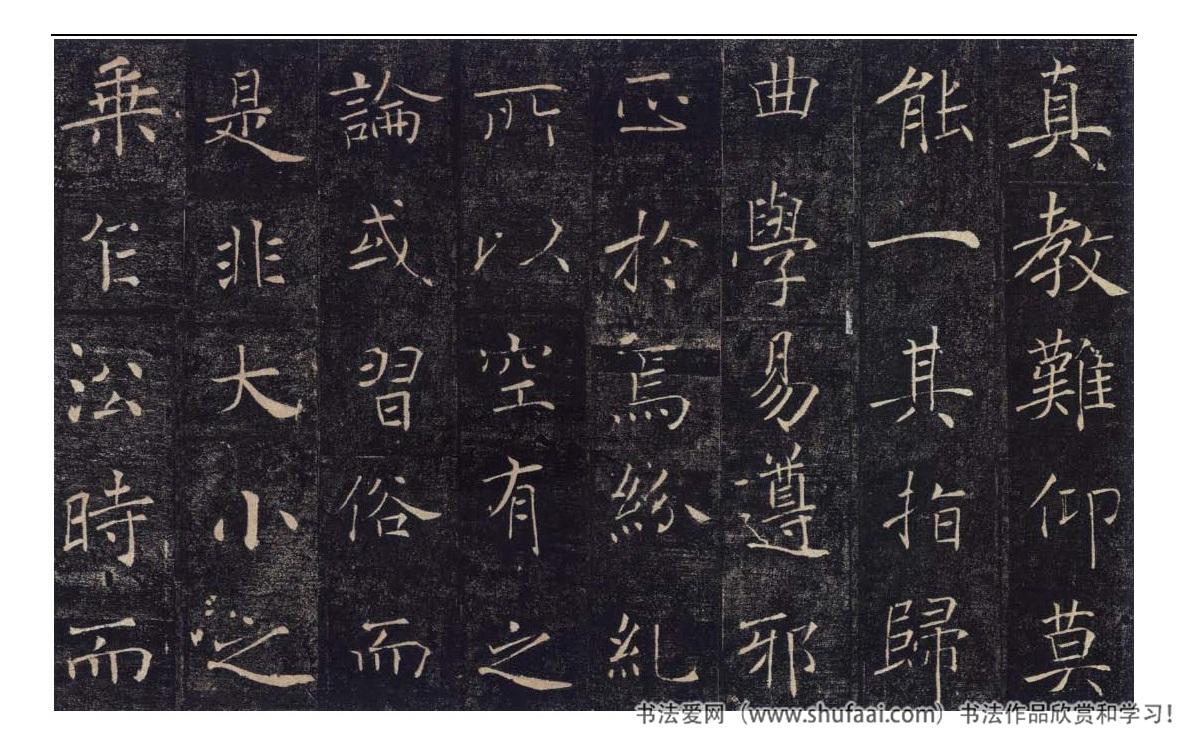 真教難仰莫
能一其指歸
曲學易遵邪
正於焉紛糺
所以空有之
論或習俗而
是非大小之
乗乍㳂時而
书法爱网（www.shufaai.com）书法作品欣赏和学习！